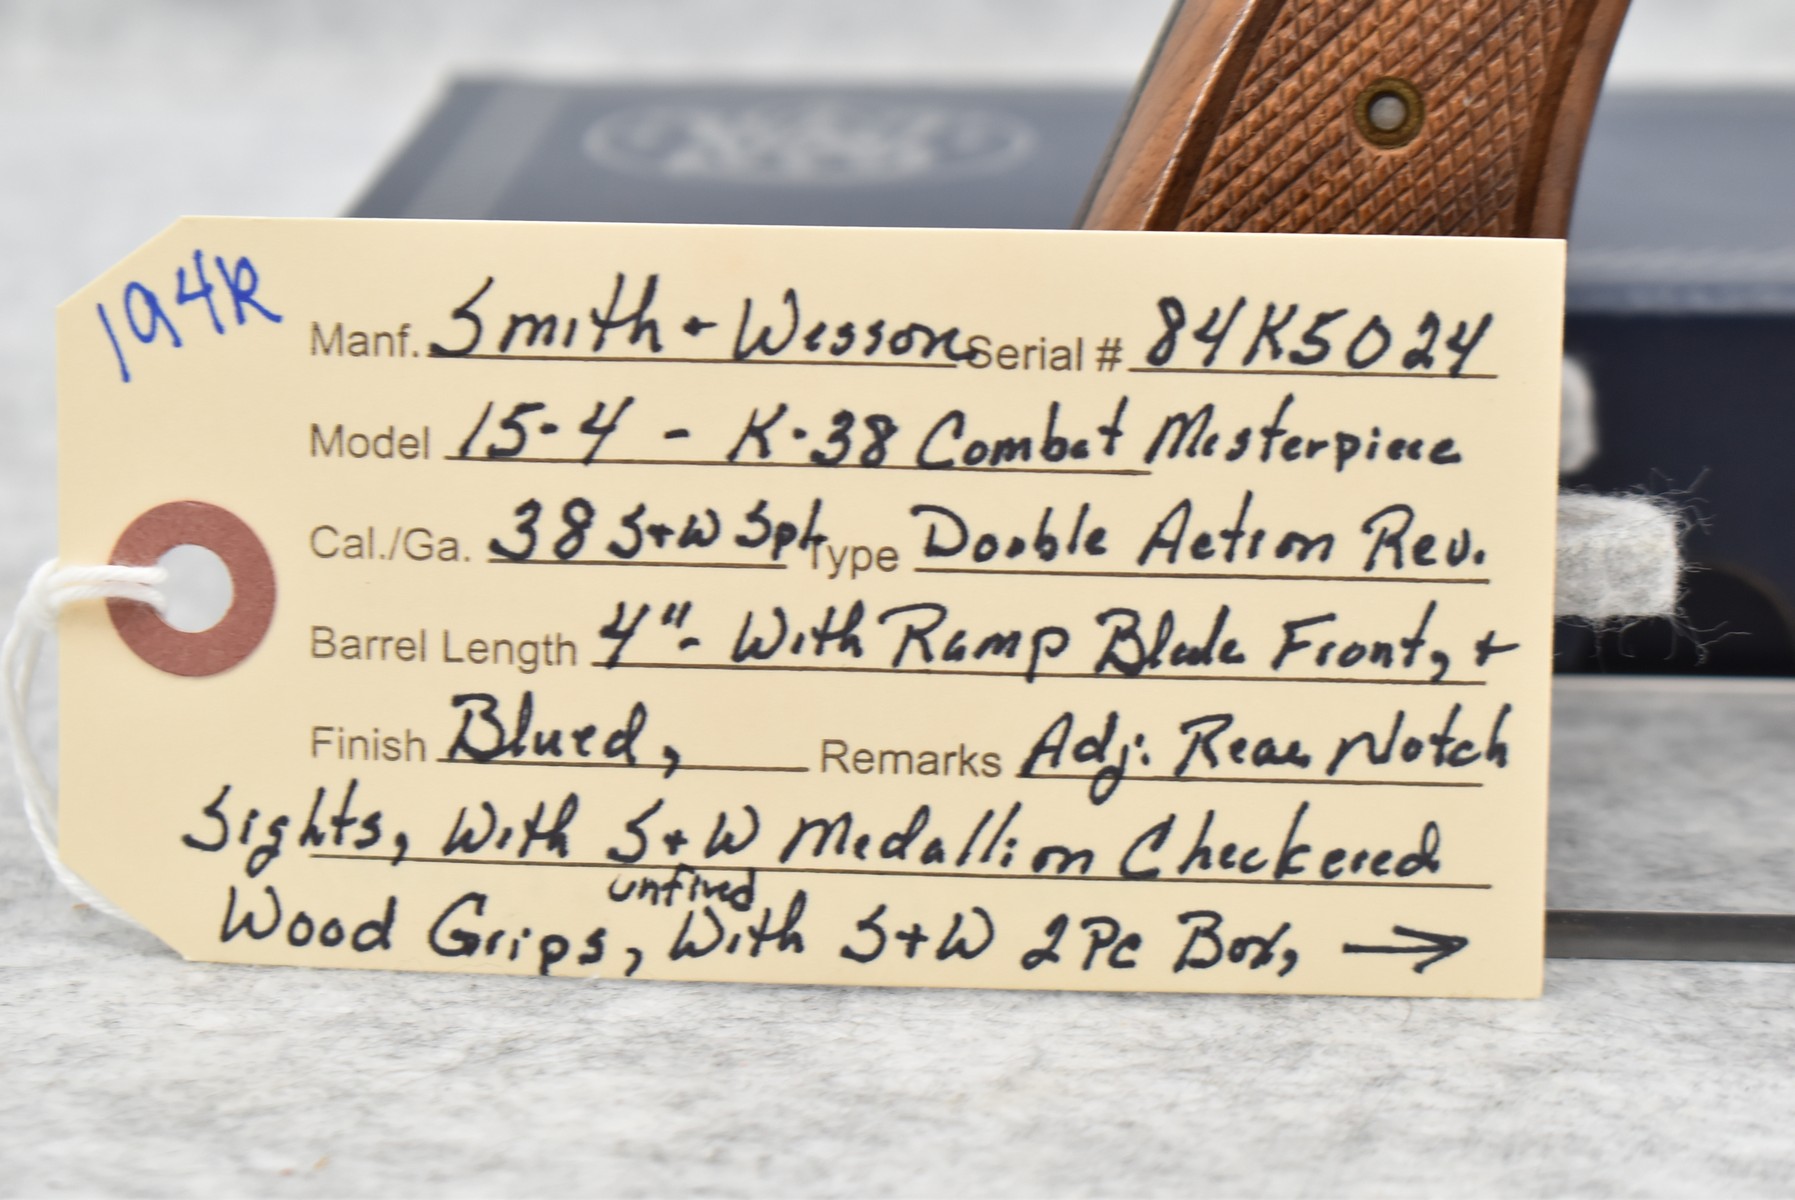 194R
Manf. Smith + Wesson Serial # 84K5024
Model 15-4 - K-38 Combat Masterpiece
Cal./Ga. 38 S+W Spl. Type Double Action Rev.
Barrel Length 4"- With Ramp Blade Front, +
Finish Blued, Remarks Adj. Rear Notch
Sights, With S+W Medallion Checkered
unfired
Wood Grips, With S+W 2 Pc Box, →